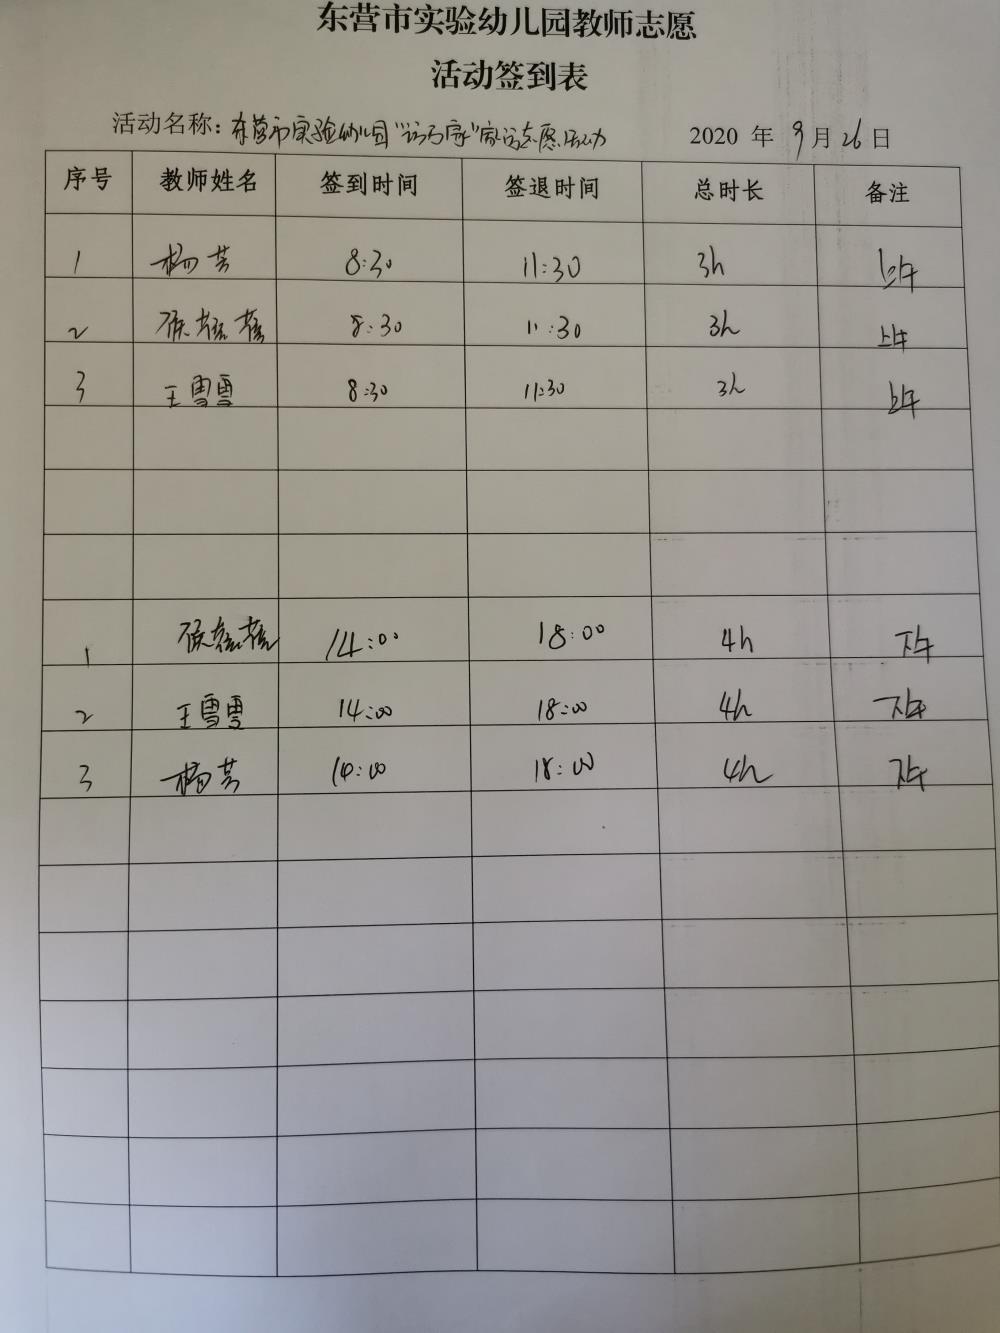 东营市实验幼儿园教师志愿
活动签到表
活动名称：东营市实验幼儿园“访万家”家访志愿活动 2020 年 9月26日
序号 教师姓名 签到时间 签退时间 总时长 备注
1 杨芸 8:30 11:30 3h 上午
2 8:30 11:30 3h 上午
3 王雪雪 8:30 11:30 3h 上午
1 14:00 18:00 4h 下午
2 王雪雪 14:00 18:00 4h 下午
3 杨芸 14:00 18:00 4h 下午